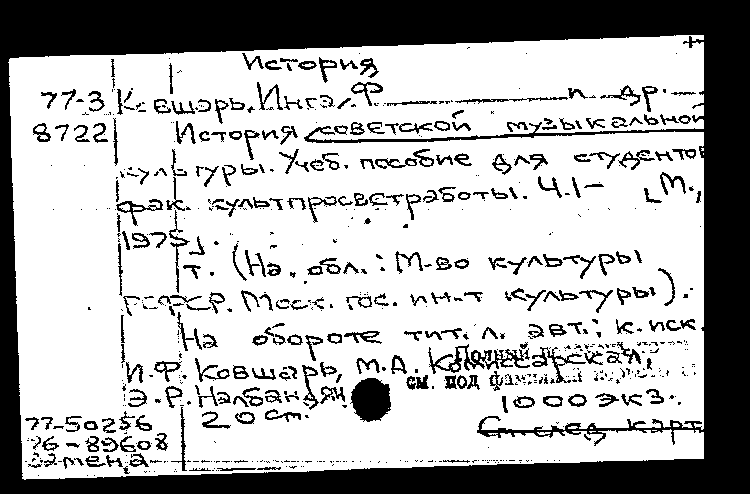 История
77-3 Ковшарь, Инга Ф. и др.
8722 История советской музыкальной
культуры. Учеб. пособие для студентов
фак. культпросветработы. Ч.1– [М.,
1975].
т. (На. обл.: М-во культуры
РСФСР. Моск. гос. ин-т культуры).
На обороте тит. л. авт.: к. иск.
И.Ф. Ковшарь, М.А. Комиссарская,
Полный
Э.Р. Налбандян
см. под фамилией
20 cm. 1000 экз.
77-50256 См. след карт
76-89608
Замена